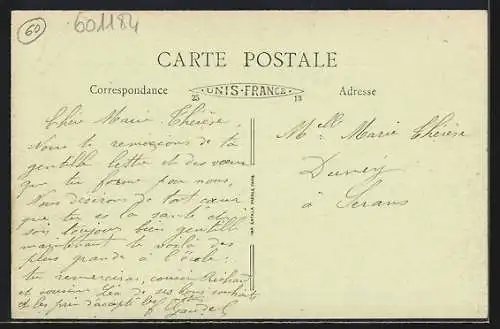 60
601184
CARTE POSTALE
Correspondance
UNIS-FRANCE
25
13
Adresse
Chère Marie Thérèse.
Nous te remercions de ta
gentille lettre et des vœux
que tu forme pour nous,
Nous desirons de tout cœur
que tu es la santé et
sois toujours bien gentille
maintenant te voilà des
plus grande à l'école.
tu remerciras, cousin
et cousine Léa de ses bons souhaits
et les prie d'accepté
Melle Marie Thérèse
à Serans